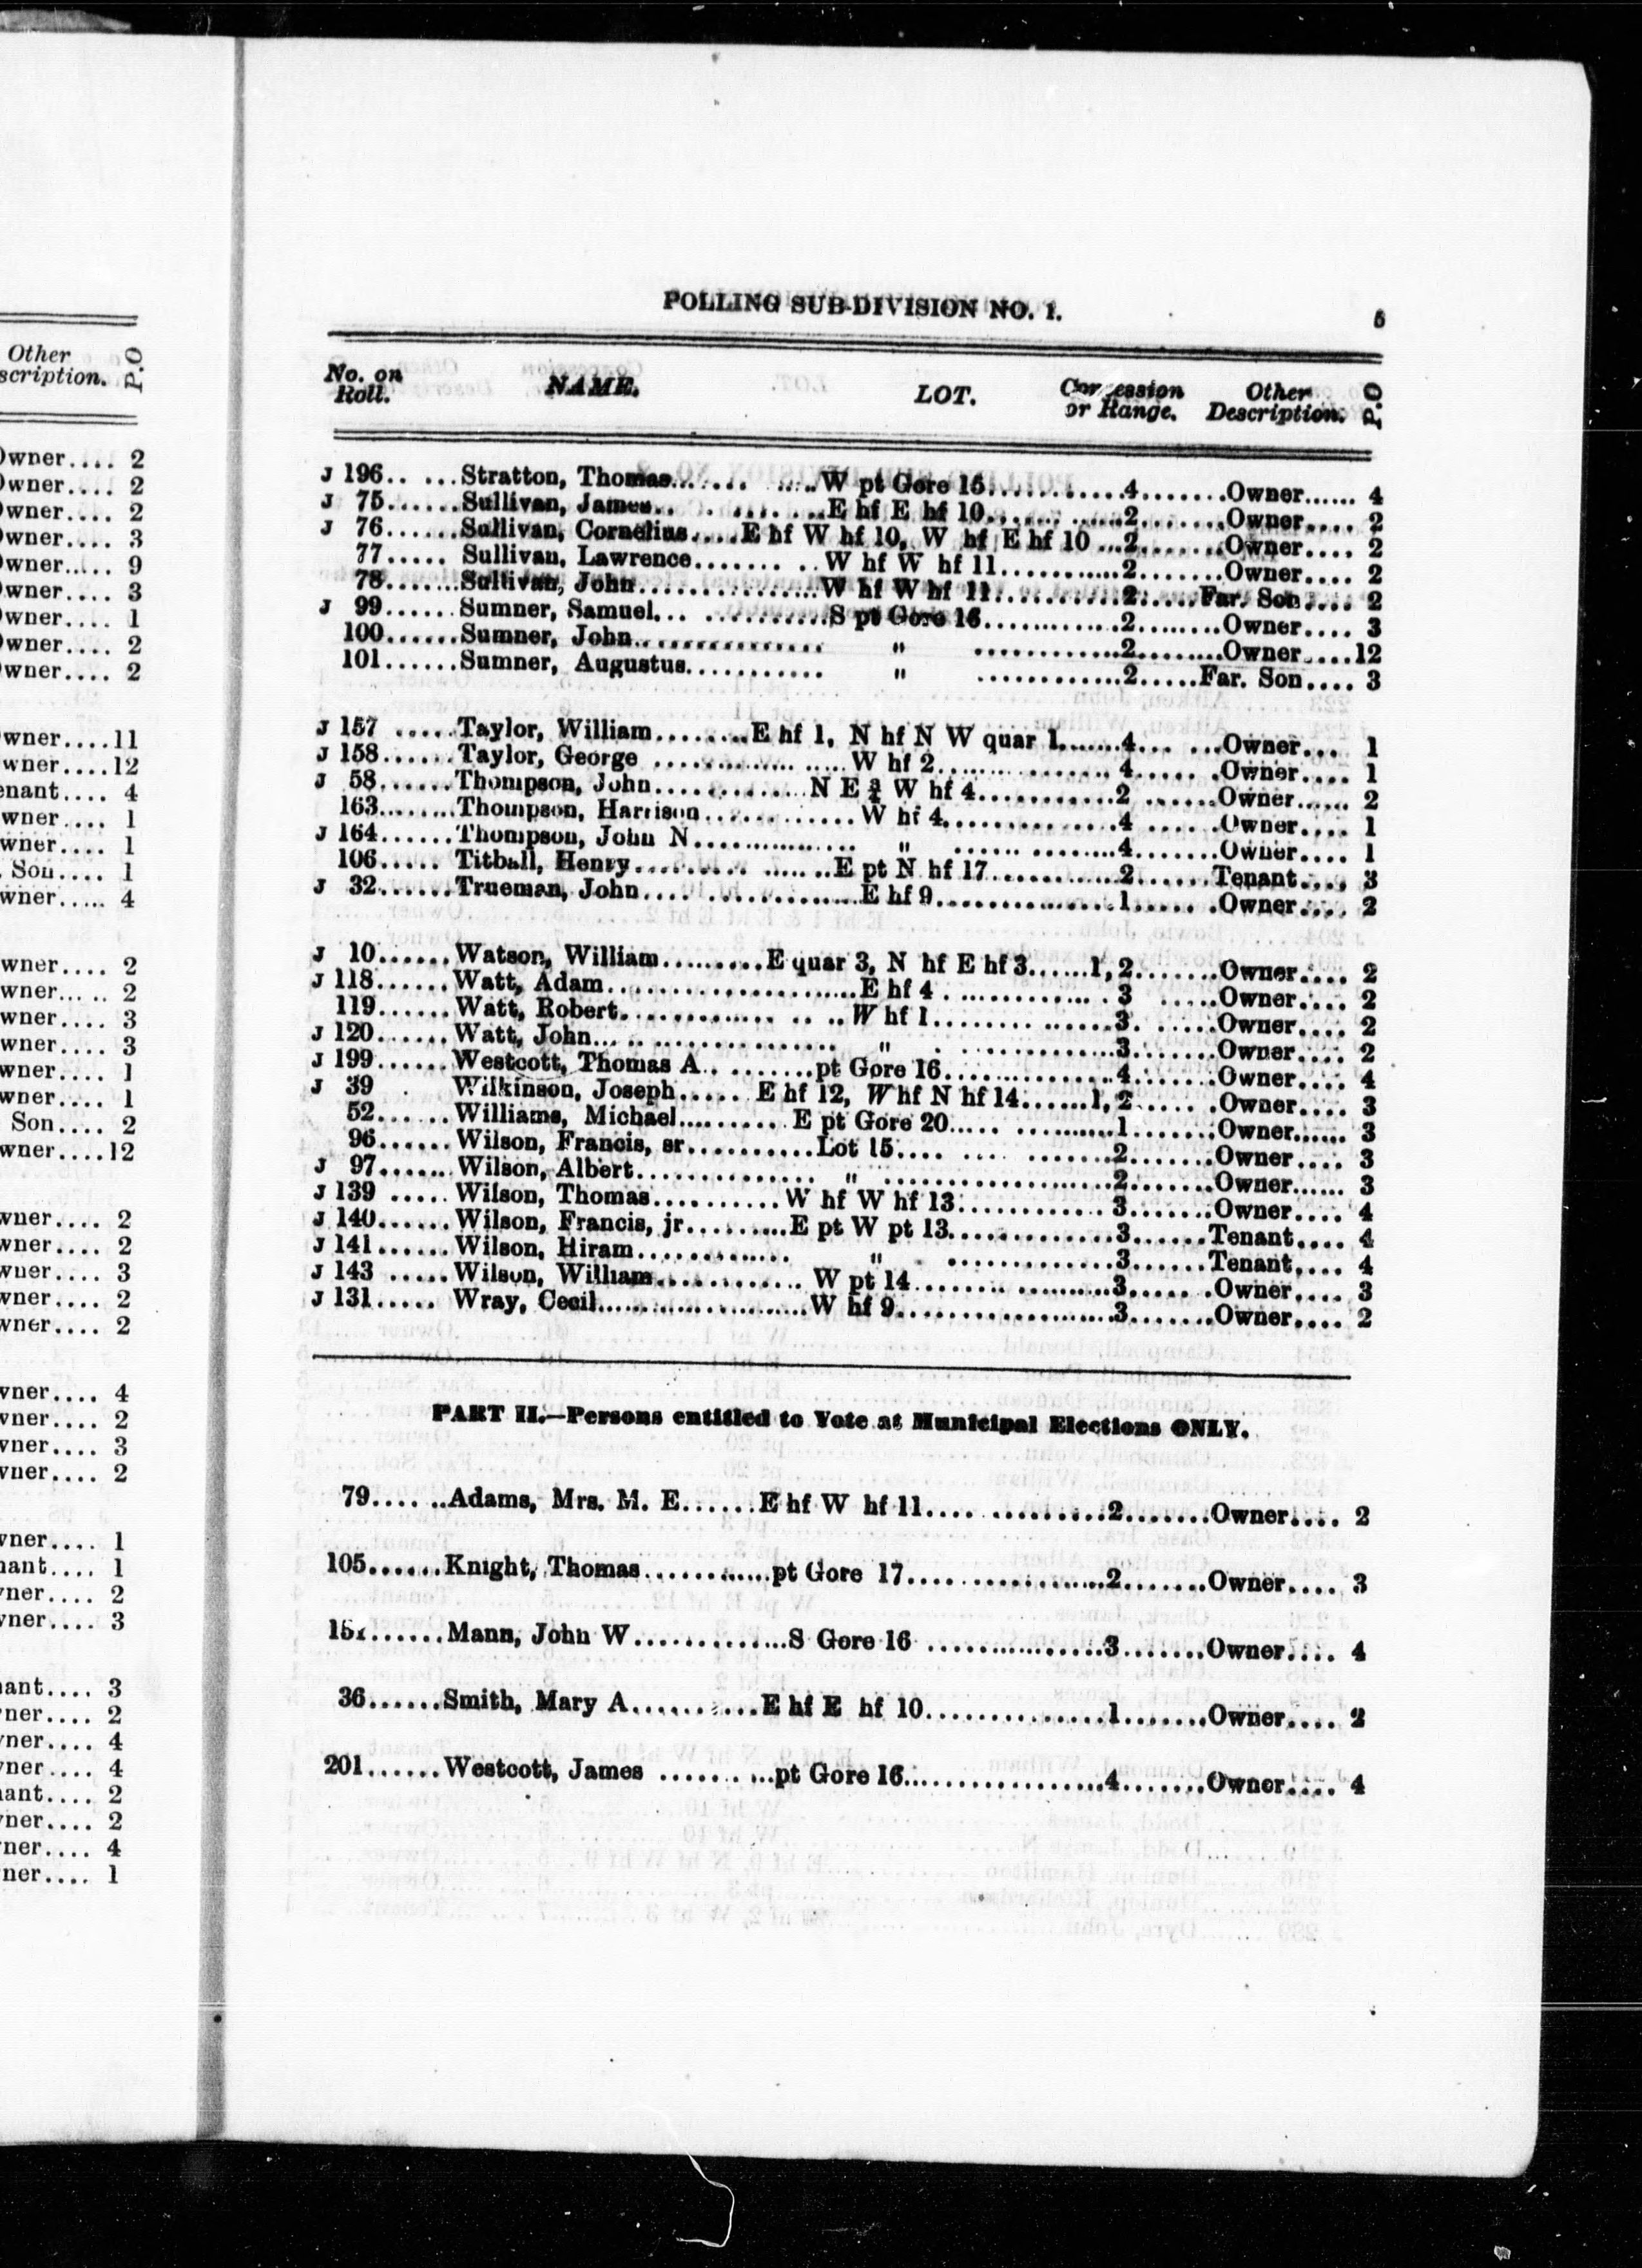 Other
scription. P.O
Owner.... 2
Owner.... 2
Owner.... 2
Owner.... 3
Owner..... 9
Owner.... 3
Owner.... 1
Owner.... 2
Owner.... 2
wner....11
wner....12
enant.... 4
wner.... 1
wner.... 1
. Son.... 1
wner..... 4
wner.... 2
wner... .. 2
wner.... 3
wner.... 3
wner.... 1
wner.... 1
Son.... 2
wner....12
wner.... 2
wner.... 2
wner.... 3
wner.... 2
wner.... 2
wner.... 4
wner.... 2
wner.... 3
wner.... 2
wner.... 1
nant.... 1
wner.... 2
wner.... 3
ant.... 3
ner.... 2
ner.... 4
ner.... 4
ant.... 2
ner.... 2
ner.... 4
ner.... 1
POLLING SUB-DIVISION NO. 1. 5
No. on Roll. NAME. LOT. Concession or Range. Other Description. P.O
J 196.. ...Stratton, Thomas....... .....W pt Gore 16...........4.......Owner...... 4
J 75......Sullivan, James.. . ... ...E hf E hf 10....... ......2........Owner.... 2
J 76......Sullivan, Cornelius....E hf W hf 10, W hf E hf 10 ...2.......Owner.... 2
77..... Sullivan, Lawrence....... ..W hf W hf 11...........2.......Owner.... 2
78.......Sullivan, John................W hf W hf 11...........2......Far. Son.... 2
J 99......Sumner, Samuel... ...........S pt Gore 16............2........Owner.... 3
100......Sumner, John................. " ............2........Owner....12
101......Sumner, Augustus........... " ............2.....Far. Son.... 3
J 157 .....Taylor, William.........E hf 1, N hf N W quar 1.......4... ...Owner... 1
J 158......Taylor, George ............. .....W hf 2................ 4...... .Owner.... 1
J 58......Thompson, John.............N E ¾ W hf 4...........2 .......Owner...... 2
163.......Thompson, Harrison............W hf 4..............4 ......Owner.... 1
J 164......Thompson, John N............... " ...... ........4.......Owner.... 1
106..... Titball, Henry.......... .......E pt N hf 17...........2......Tenant.... 3
J 32......Trueman, John.... .............E hf 9................1...... .Owner.... 2
J 10......Watson, William.........E quar 3, N hf E hf 3......1, 2.......Owner.... 2
J 118......Watt, Adam......................E hf 4 . ............ . 3 .....Owner.... 2
119......Watt, Robert............. .. ..W hf 1......... ......3. ......Owner.... 2
J 120......Watt, John... .. ................. " . ..............3.......Owner.... 2
J 199......Westcott, Thomas A.. ........pt Gore 16..............4.......Owner.... 4
J 39 . Wilkinson, Joseph..... E hf 12, W hf N hf 14......1, 2...... .Owner.... 3
52......Williams, Michael......... E pt Gore 20..... .........1.......Owner...... 3
96......Wilson, Francis, sr...........Lot 15.... .... .......2.......Owner.... 3
J 97.......Wilson, Albert............... " ...................2.......Owner...... 3
J 139 ..... Wilson, Thomas............W hf W hf 13............ 3.......Owner.... 4
J 140...... Wilson, Francis, jr.........E pt W pt 13..............3......Tenant.... 4
J 141......Wilson, Hiram............. " ..............3......Tenant.... 4
J 143 .....Wilson, William............. W pt 14........ .........3...... .Owner.... 3
J 131..... Wray, Cecil.....................W hf 9...................3.......Owner.... 2
PART II.—Persons entitled to Vote at Municipal Elections ONLY.
79.... ..Adams, Mrs. M. E......E hf W hf 11.... ..........2.......Owner.... 2
105......Knight, Thomas...........pt Gore 17.... ............2.......Owner.... 3
......Mann, John W..............S Gore 16 ................3.......Owner.... 4
36......Smith, Mary A...........E hf E hf 10...............1.......Owner.... 2
201......Westcott, James ....... ...pt Gore 16.................4.......Owner.... 4